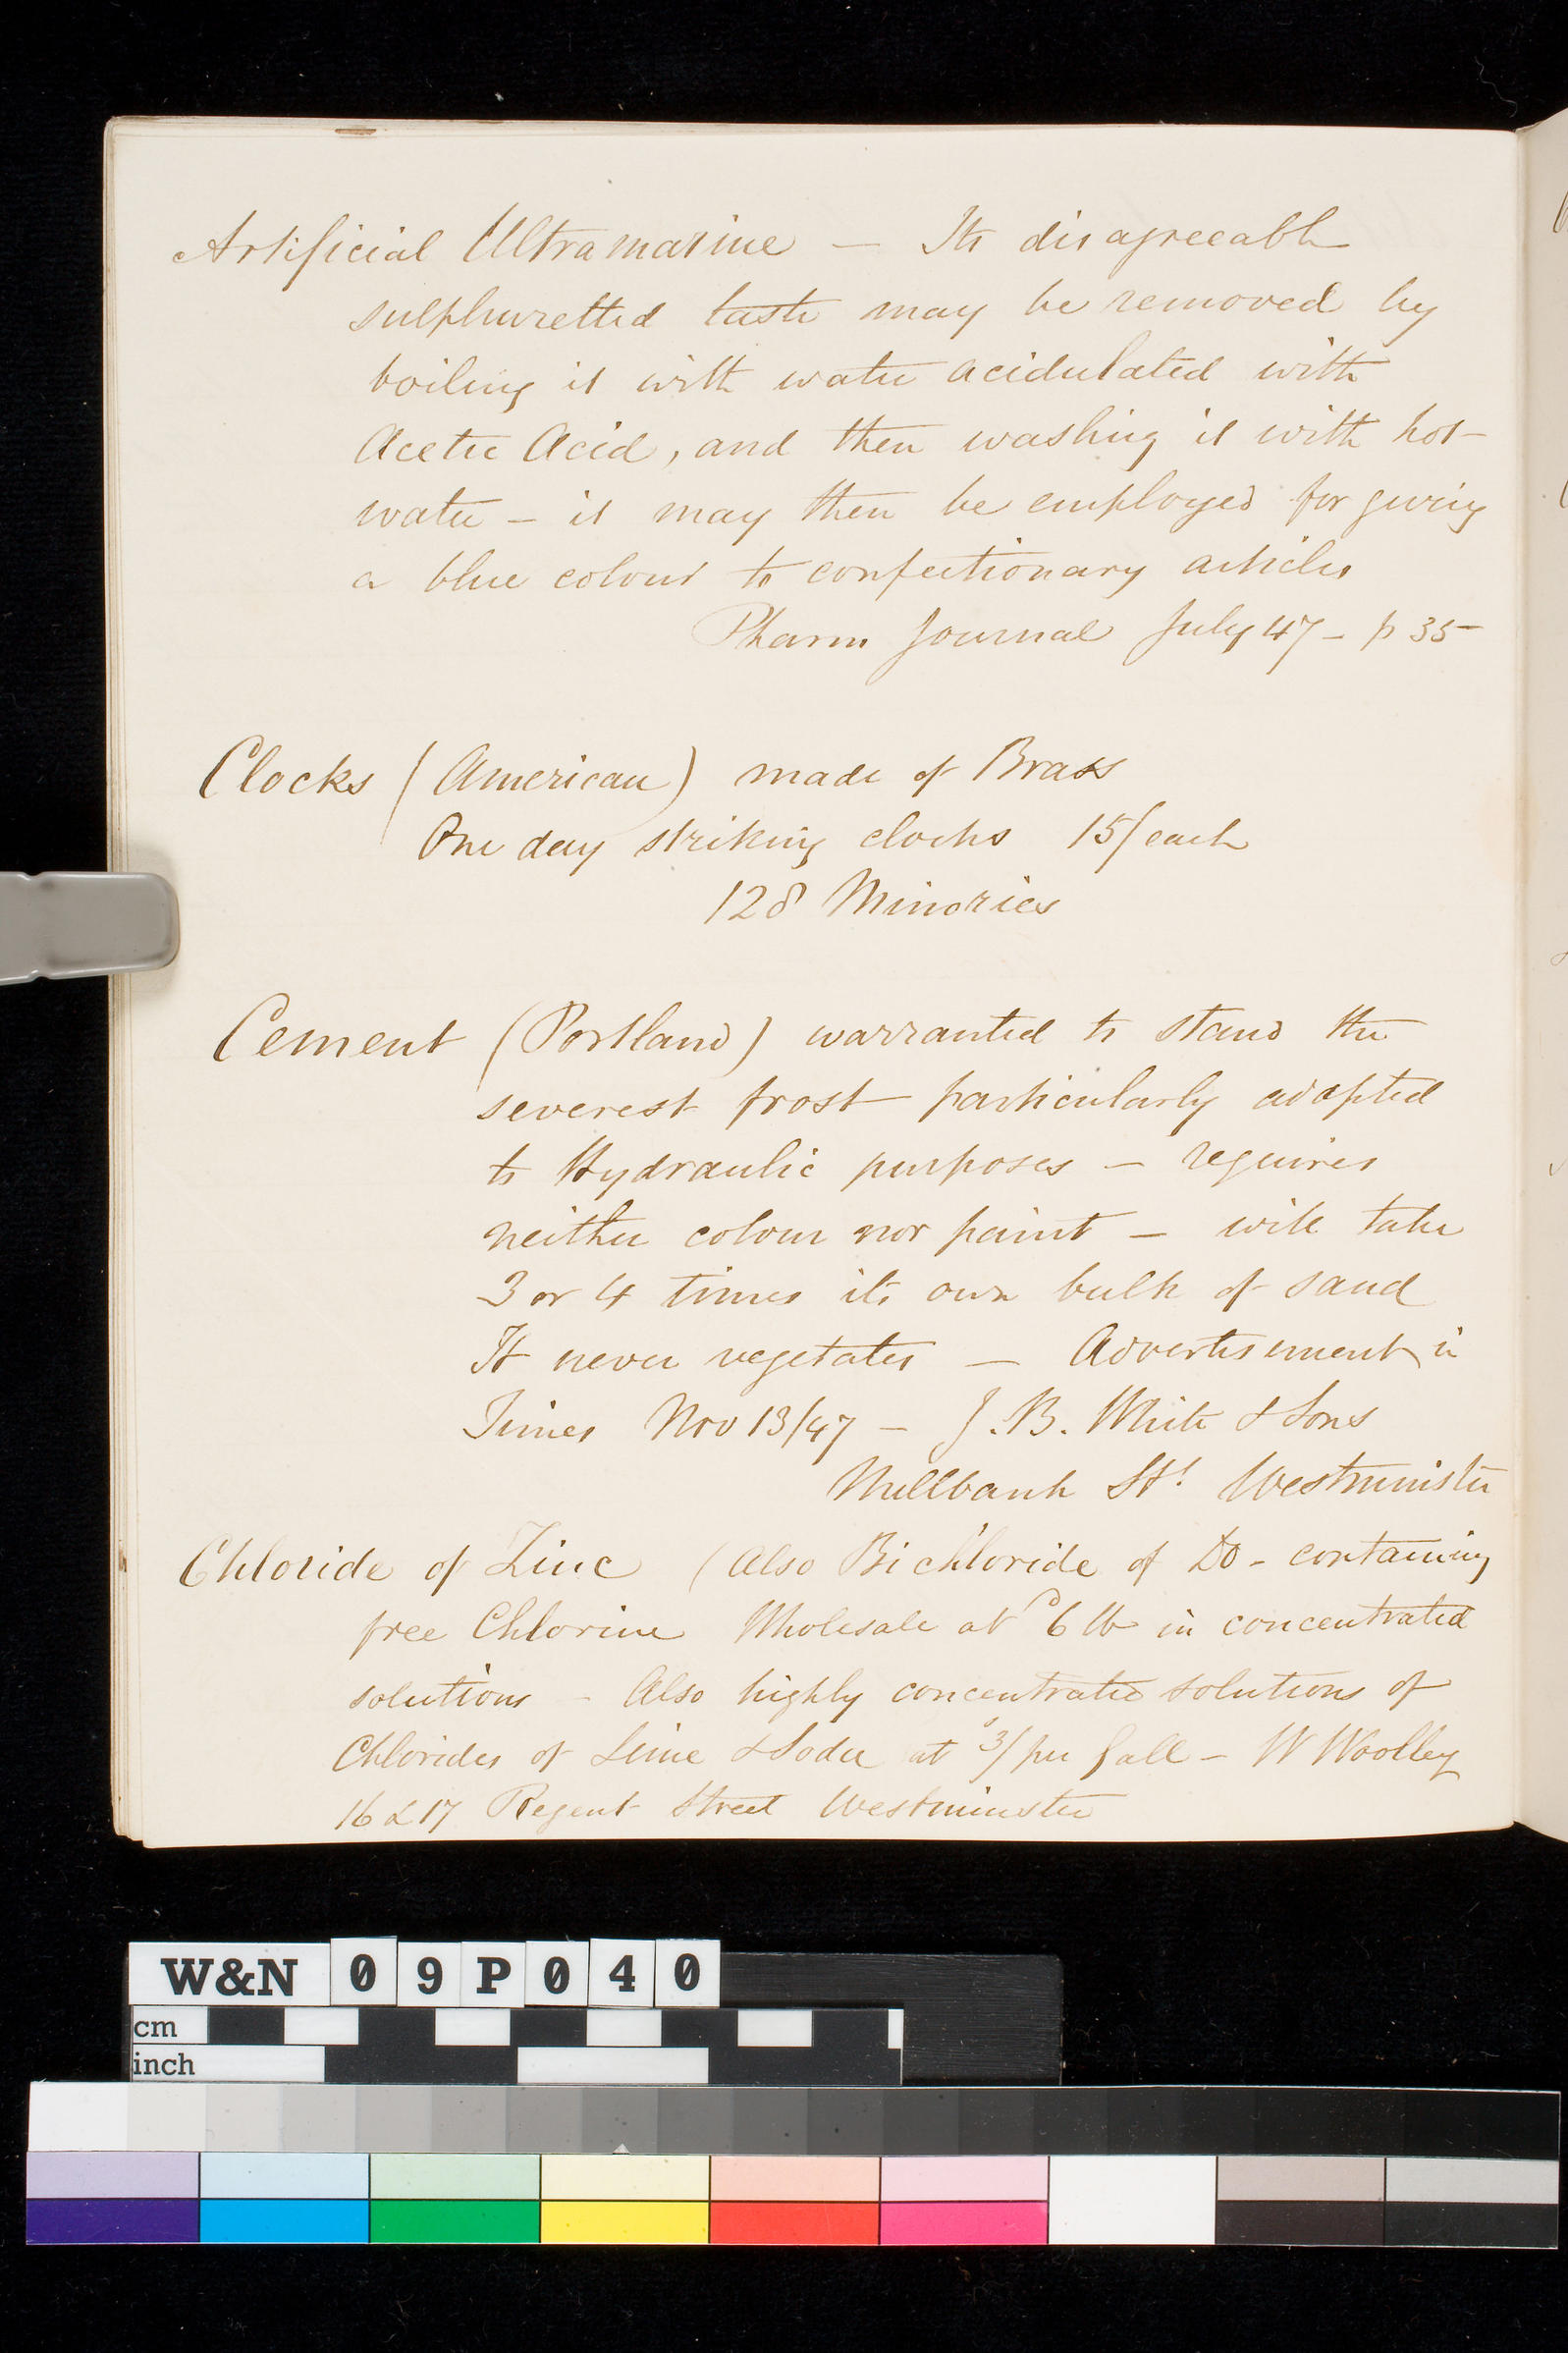 Artificial Ultramarine — Its disagreeable
sulphuretted taste may be removed by
boiling it with water acidulated with
Acetic Acid, and then washing it with hot
water – it may then be employed for giving
a blue colour to confectionary articles
Pharm Journal July 47 – p 35
Clocks (American) made of Brass
One day striking clocks 15/ each
128 Minories
Cement (Portland) warranted to stand the
severest frost particularly adapted
to Hydraulic purposes – requires
neither colour nor paint – will take
3 or 4 times its own bulk of sand
It never vegetates — Advertisement in
Times Nov 13/47 – J. B. White & Sons
Millbank St. Westminster
Chloride of Zinc (Also Bichloride of Do - containing
free Chlorine Wholesale at 6d lb in concentrated
solutions – Also highly concentrated solutions of
Chlorides of Lime & Soda at 3s/ per Gall – W Woolley
16 & 17 Regent Street Westminster
W&N 09P040
cm
inch